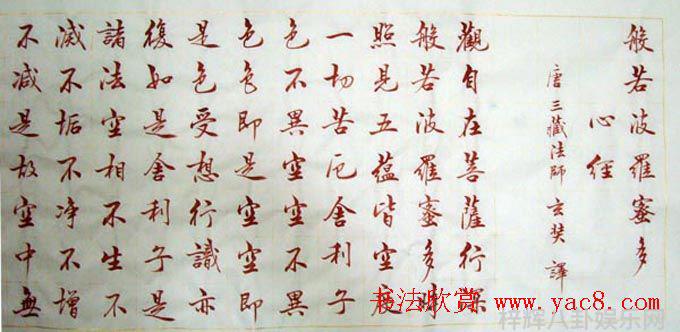 般若波羅蜜多
心経
唐三藏法師玄奘譯
觀自在菩薩行深
般若波羅蜜多時
照見五蘊皆空度
一切苦厄舍利子
色不異空空不異
色色即是空空即
是色受想行識亦
復如是舍利子是
諸法空相不生不
滅不垢不净不增
不減是故空中無
书法欣赏 www.yac8.com
八卦娱乐网